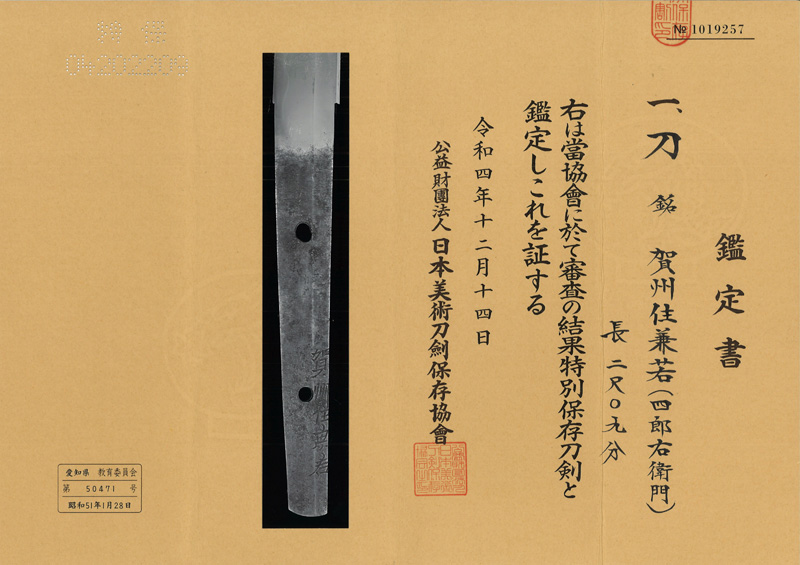 № 1019257
鑑定書
一、刀 銘 賀州住兼若(四郎右衛門)
長 二尺〇九分
右は當協會に於て審査の結果特別保存刀剣と
鑑定しこれを証する
令和四年十二月十四日
公益財團法人 日本美術刀劍保存協會
賀州住兼若
04202209
愛知県 教育委員会
第 50471 号
昭和51年1月28日